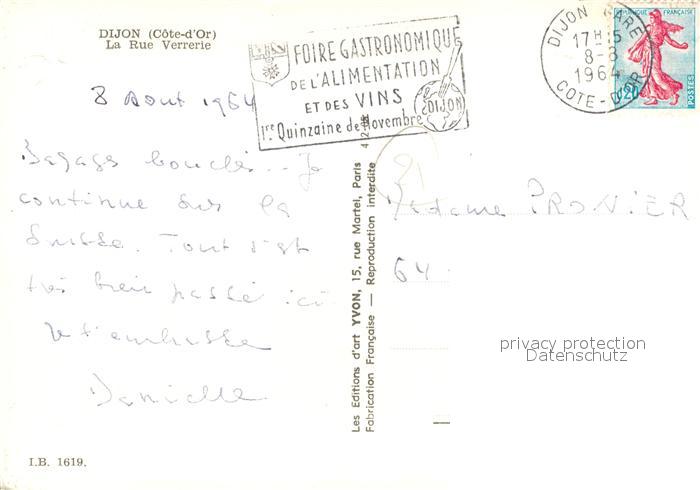 DIJON (Côte-d'Or)
La Rue Verrerie
FOIRE GASTRONOMIQUE
DE L'ALIMENTATION
ET DES VINS
1re Quinzaine de Novembre
DIJON
DIJON GARE
17H15
8-8
1964
COTE-D'OR
REPUBLIQUE FRANÇAISE
0,20
POSTES
8 Aout 1964
Bagages bouclés... Je
continue sur la
Suisse. Tout s'est
très bien passé ici
Je t'embrasse
Danielle
Les Editions d'art YVON, 15, rue Martel, Paris
Fabrication Française — Reproduction interdite
Madame PRONIER
64
privacy protection
Datenschutz
I.B. 1619.